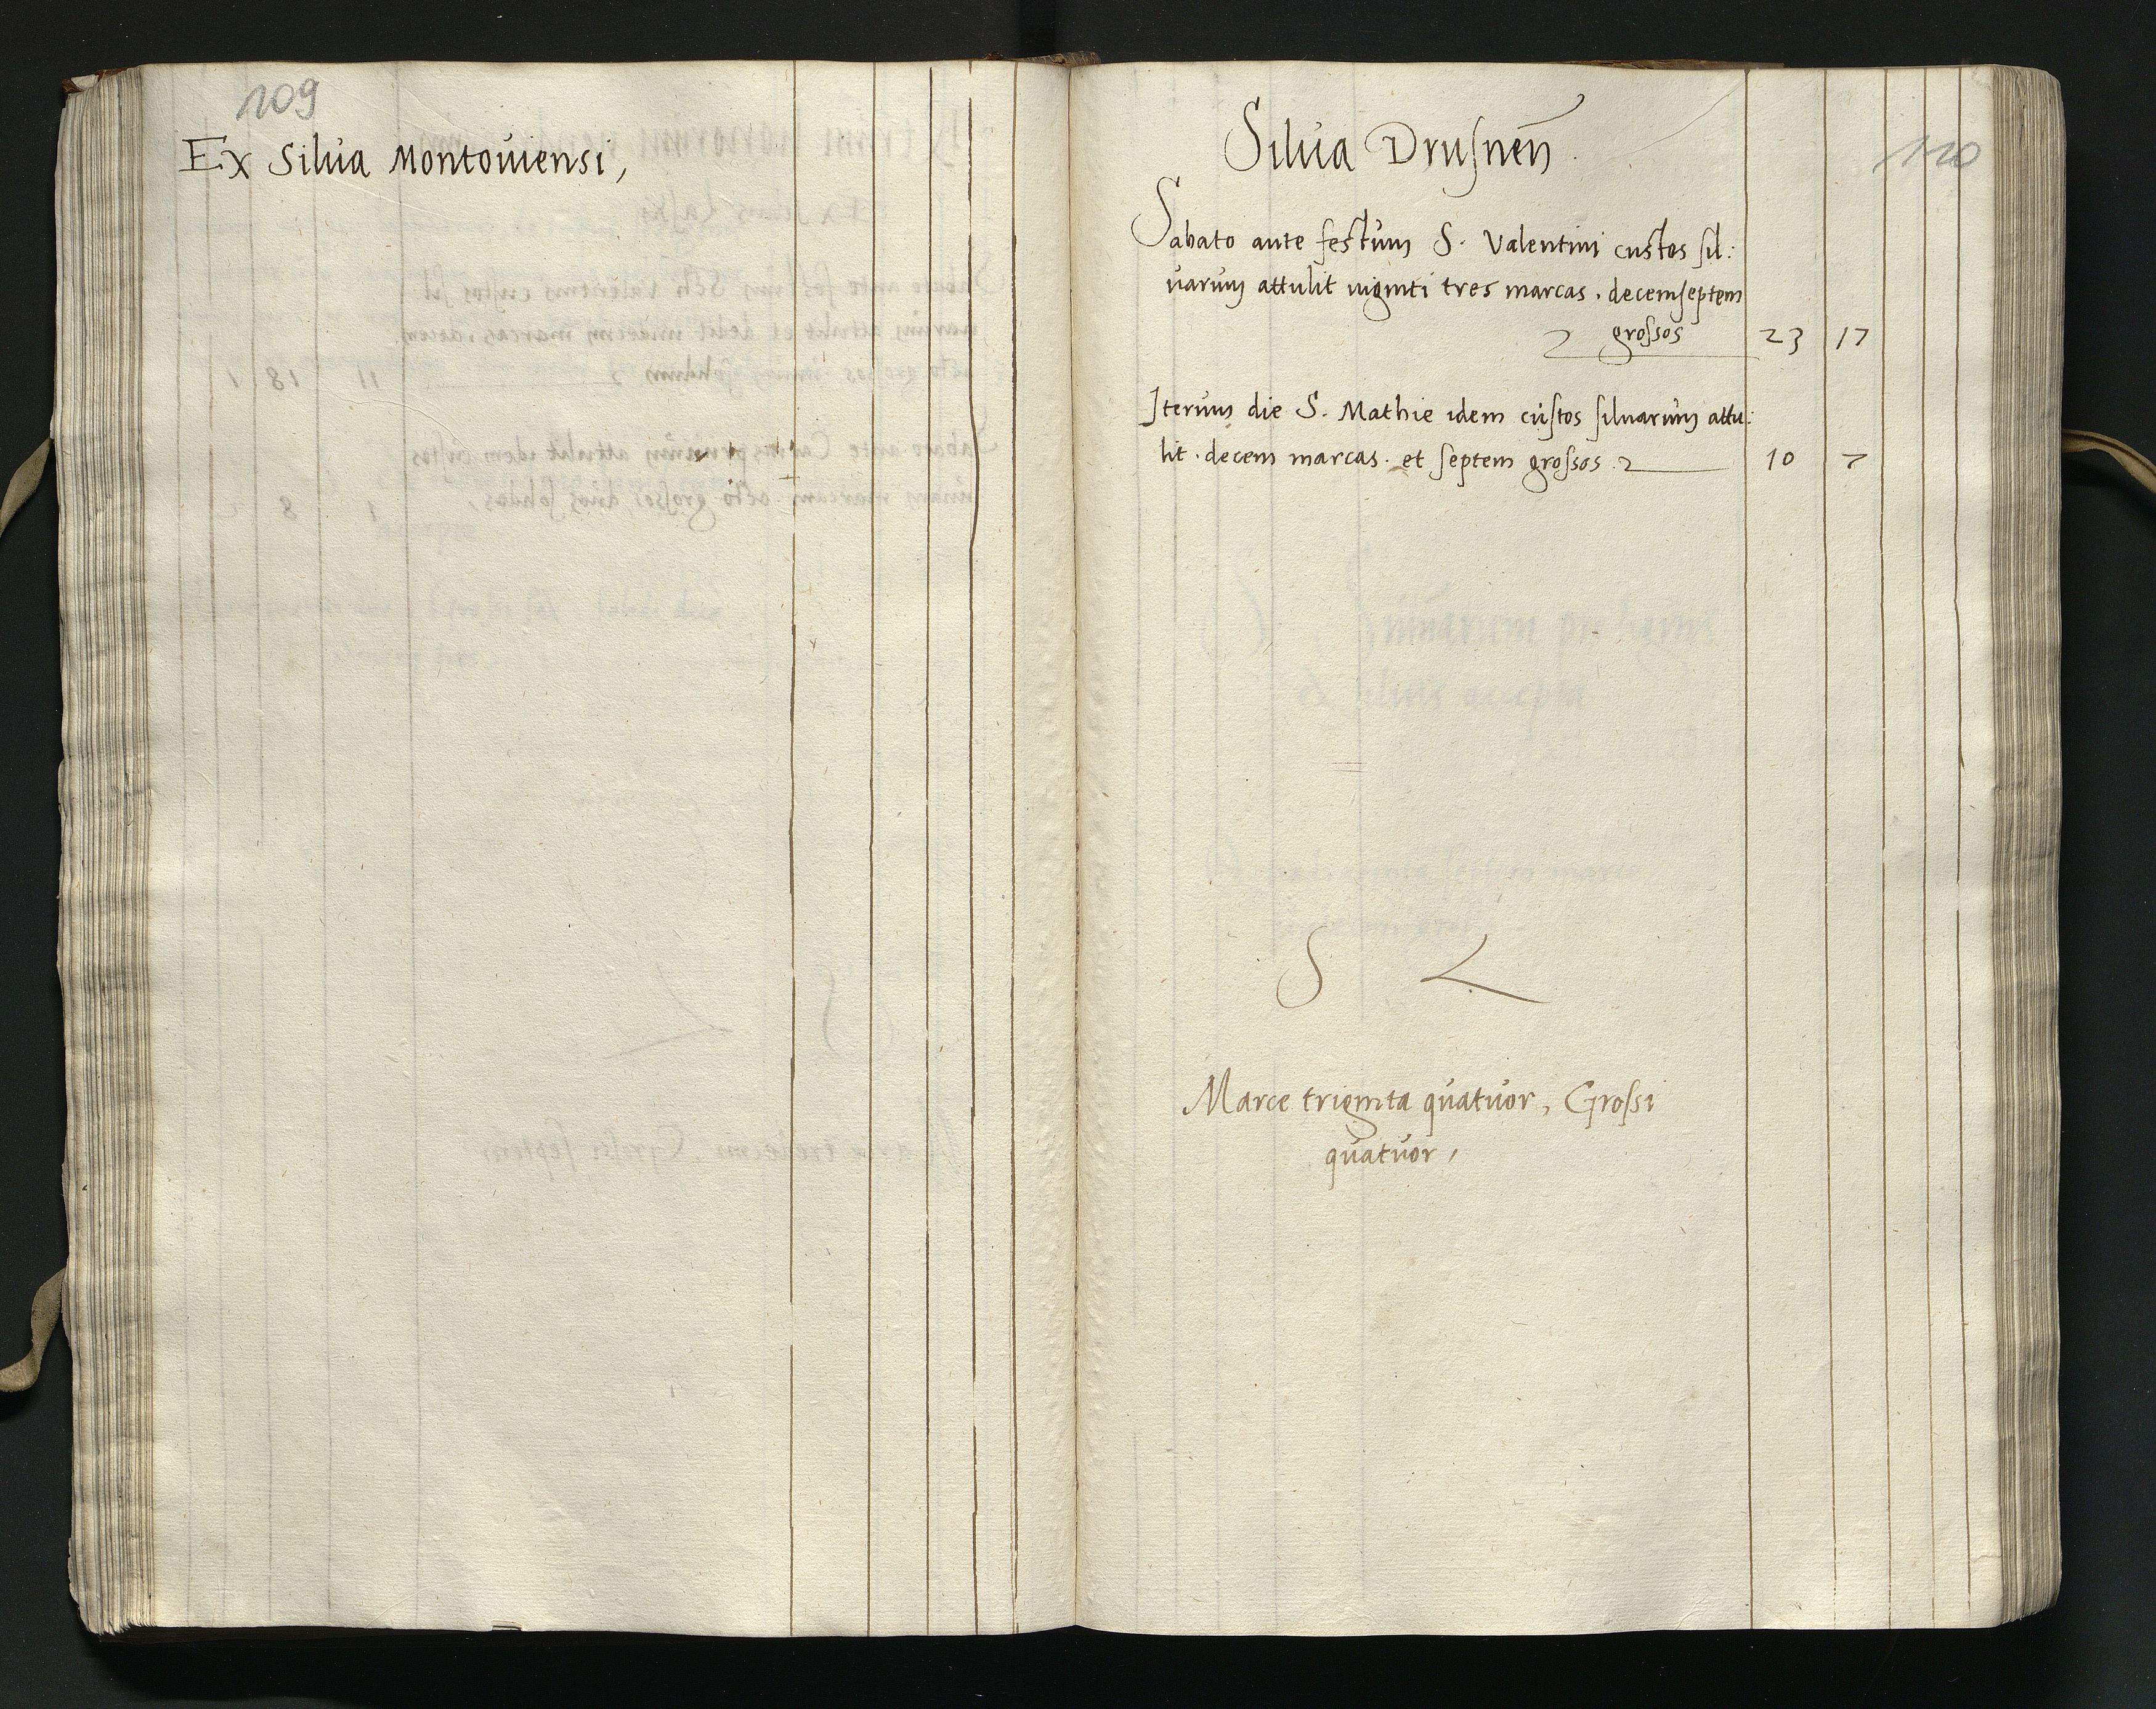 109
Ex Silva Montoviensi,
110
Silva Drusnen̄.
Sabato ante festum S. Valentini custos sil:
varum attulit viginti tres marcas. decemseptem
grossos 23 17
Iterum die S. Mathie idem custos silvarum attu:
lit. decem marcas. et septem grossos. 10 7
S L
Marce triginta quatuor, Grossi
quatuor,